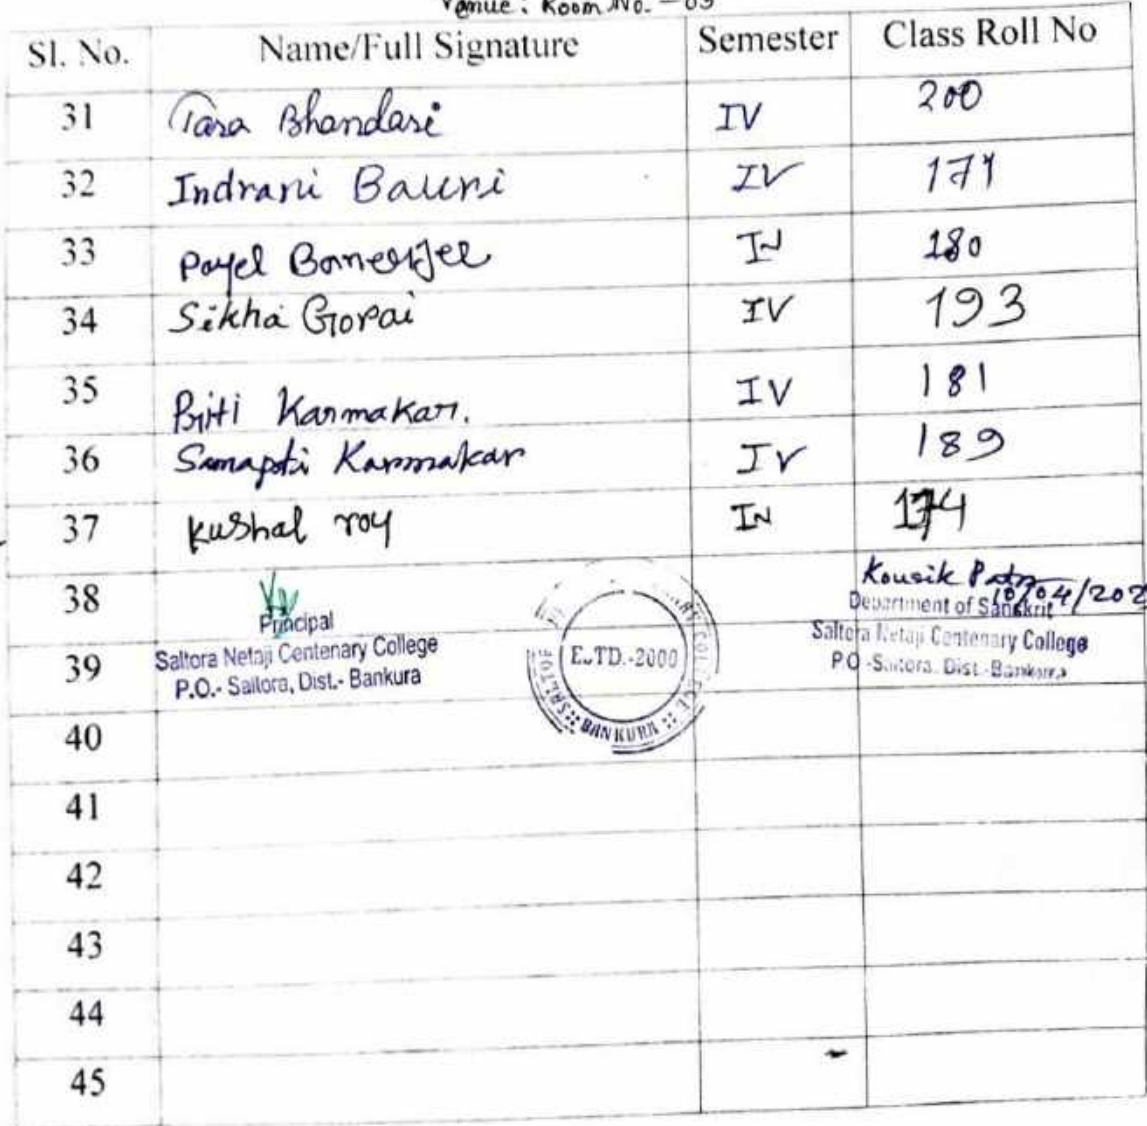 Venue: Room No. - 09
Sl. No. Name/Full Signature Semester Class Roll No
31 Tara Bhandari IV 200
32 Indrani Bauri IV 171
33 Payel Banerjee IV 180
34 Sikha Gorai IV 193
35 Priti Karmakar. IV 181
36 Samapti Karmakar IV 189
37 Kushal roy IV 174
38
Principal
Saltora Netaji Centenary College
P.O.- Saltora, Dist.- Bankura
ESTD.-2000
BANKURA
Kousik Patra
10/04/202
Department of Sanskrit
Saltora Netaji Centenary College
P.O-Saltora, Dist.-Bankura
39
40
41
42
43
44
45